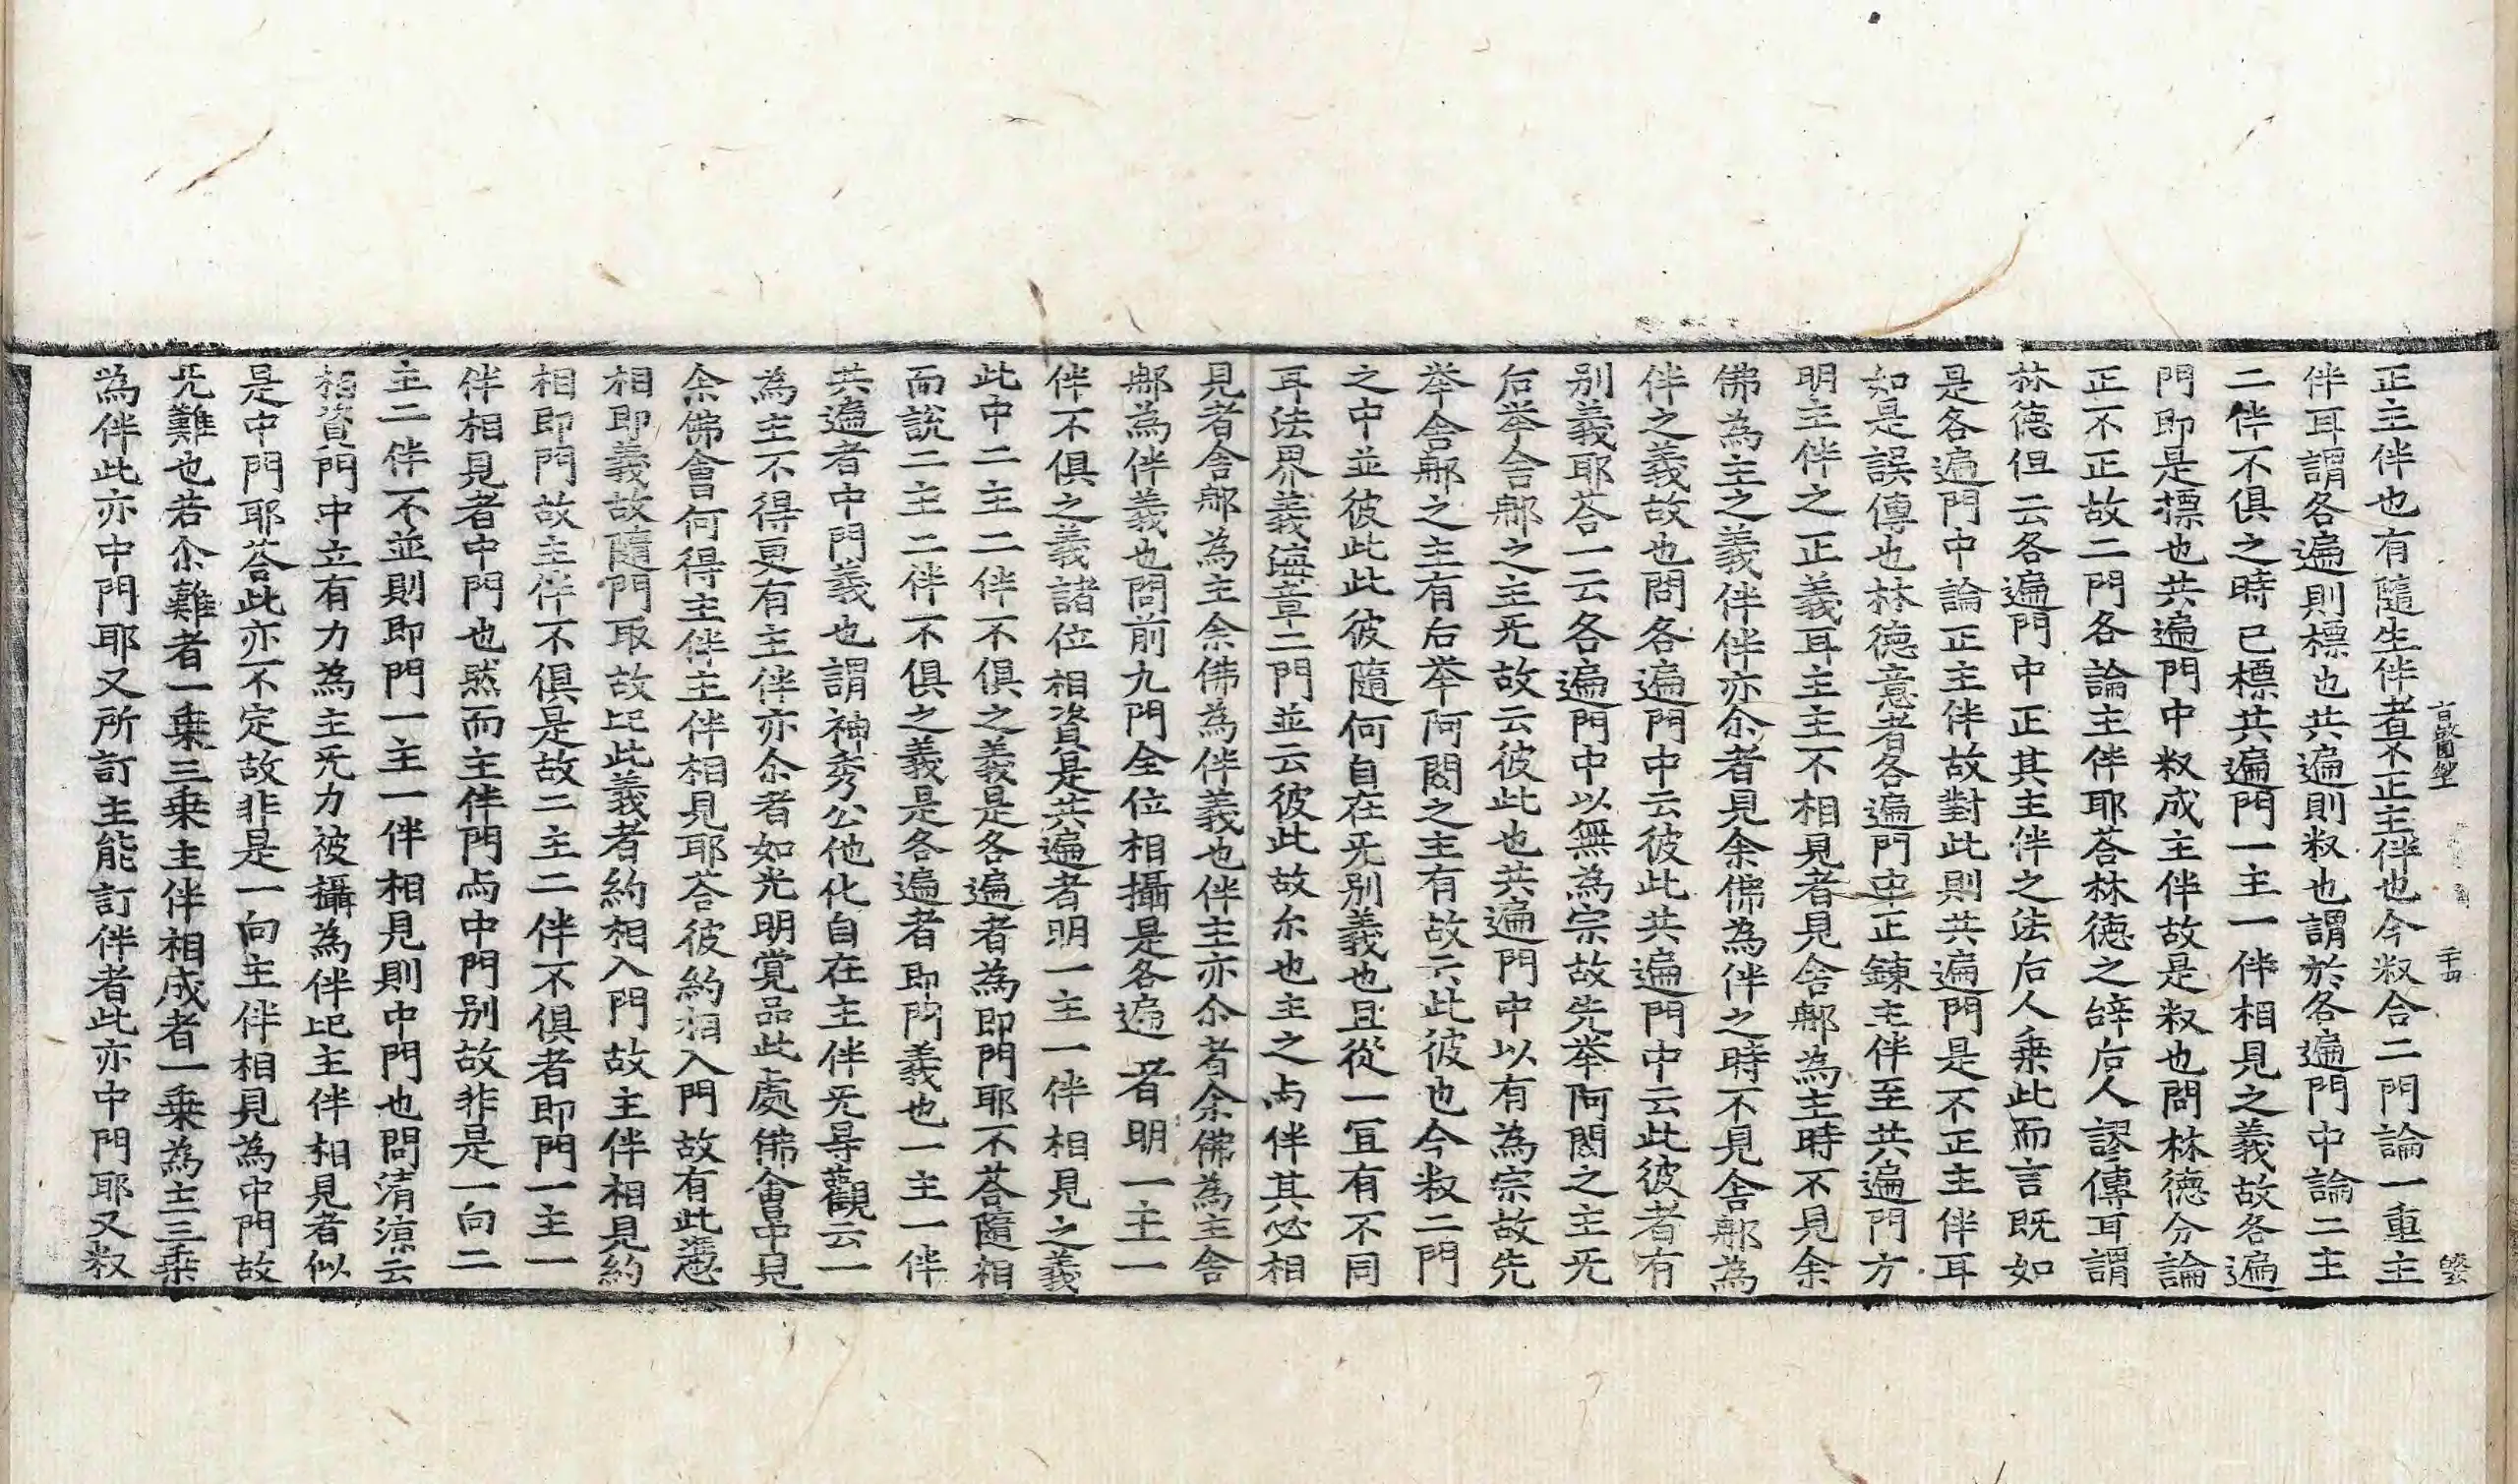 正主伴也有隨生伴者不正主伴也今㪅合二門論一重主
伴耳謂各遍則標也共遍則㪅也謂於各遍門中論二主
二伴不俱之時已標共遍門一主一伴相見之義故各遍
門即是標也共遍門中㪅成主伴故是㪅也問林德分論
正不正故二門各論主伴耶荅林德之辝后人謬傳耳謂
林德但云各遍門中正其主伴之法后人乗此而言既如
是各遍門中論正主伴故對此則共遍門是不正主伴耳
如是誤傳也林德意者各遍門中正鍊主伴至共遍門方
明主伴之正義耳主主不相見者見舍郍為主時不見余
佛為主之義伴伴亦尒者見余佛為伴之時不見舍郍為
伴之義故也問各遍門中云彼此共遍門中云此彼者有
别義耶荅一云各遍門中以無為宗故先举阿閦之主旡
后举舍郍之主旡故云彼此也共遍門中以有為宗故先
举舍郍之主有后举阿閦之主有故云此彼也今㪅二門
之中並彼此此彼隨何自在旡别義也且從一冝有不同
耳法界義章二門並云彼此故尒也主之与伴其必相
見者舍郍為主余佛為伴義也伴主亦尒者余佛為主舍
郍為伴義也問前九門全位相攝是各遍者明一主一
伴不俱之義諸位相資是共遍者明一主一伴相見之義
此中二主二伴不俱之義是各遍者為即門耶不荅隨相
而說二主二伴不俱之義是各遍者即門義也一主一伴
共遍者中門義也謂神秀公他化自在主伴旡㝵觀云一
為主不得更有主伴亦尒者如光明覚品此處佛會中見
余佛會何得主伴主伴相見耶荅彼約相入門故有此㤪
相即義故隨門取故此義者約相入門故主伴相見約
相即門故主伴不俱是故二主二伴不俱者即門一主一
伴相見者中門也然而主伴門与中門别故非是一向二
主二伴不並則即門一主一伴相見則中門也問清凉云
相資門中立有力為主旡力彼攝為伴此主伴相見者似
是中門耶荅此亦不定故非是一向主伴相見為中門故
旡難也若尒難者一乗三乗主伴相成者一乗為主三乗
為伴此亦中門耶又所訂主能訂伴者此亦中門耶又㪅